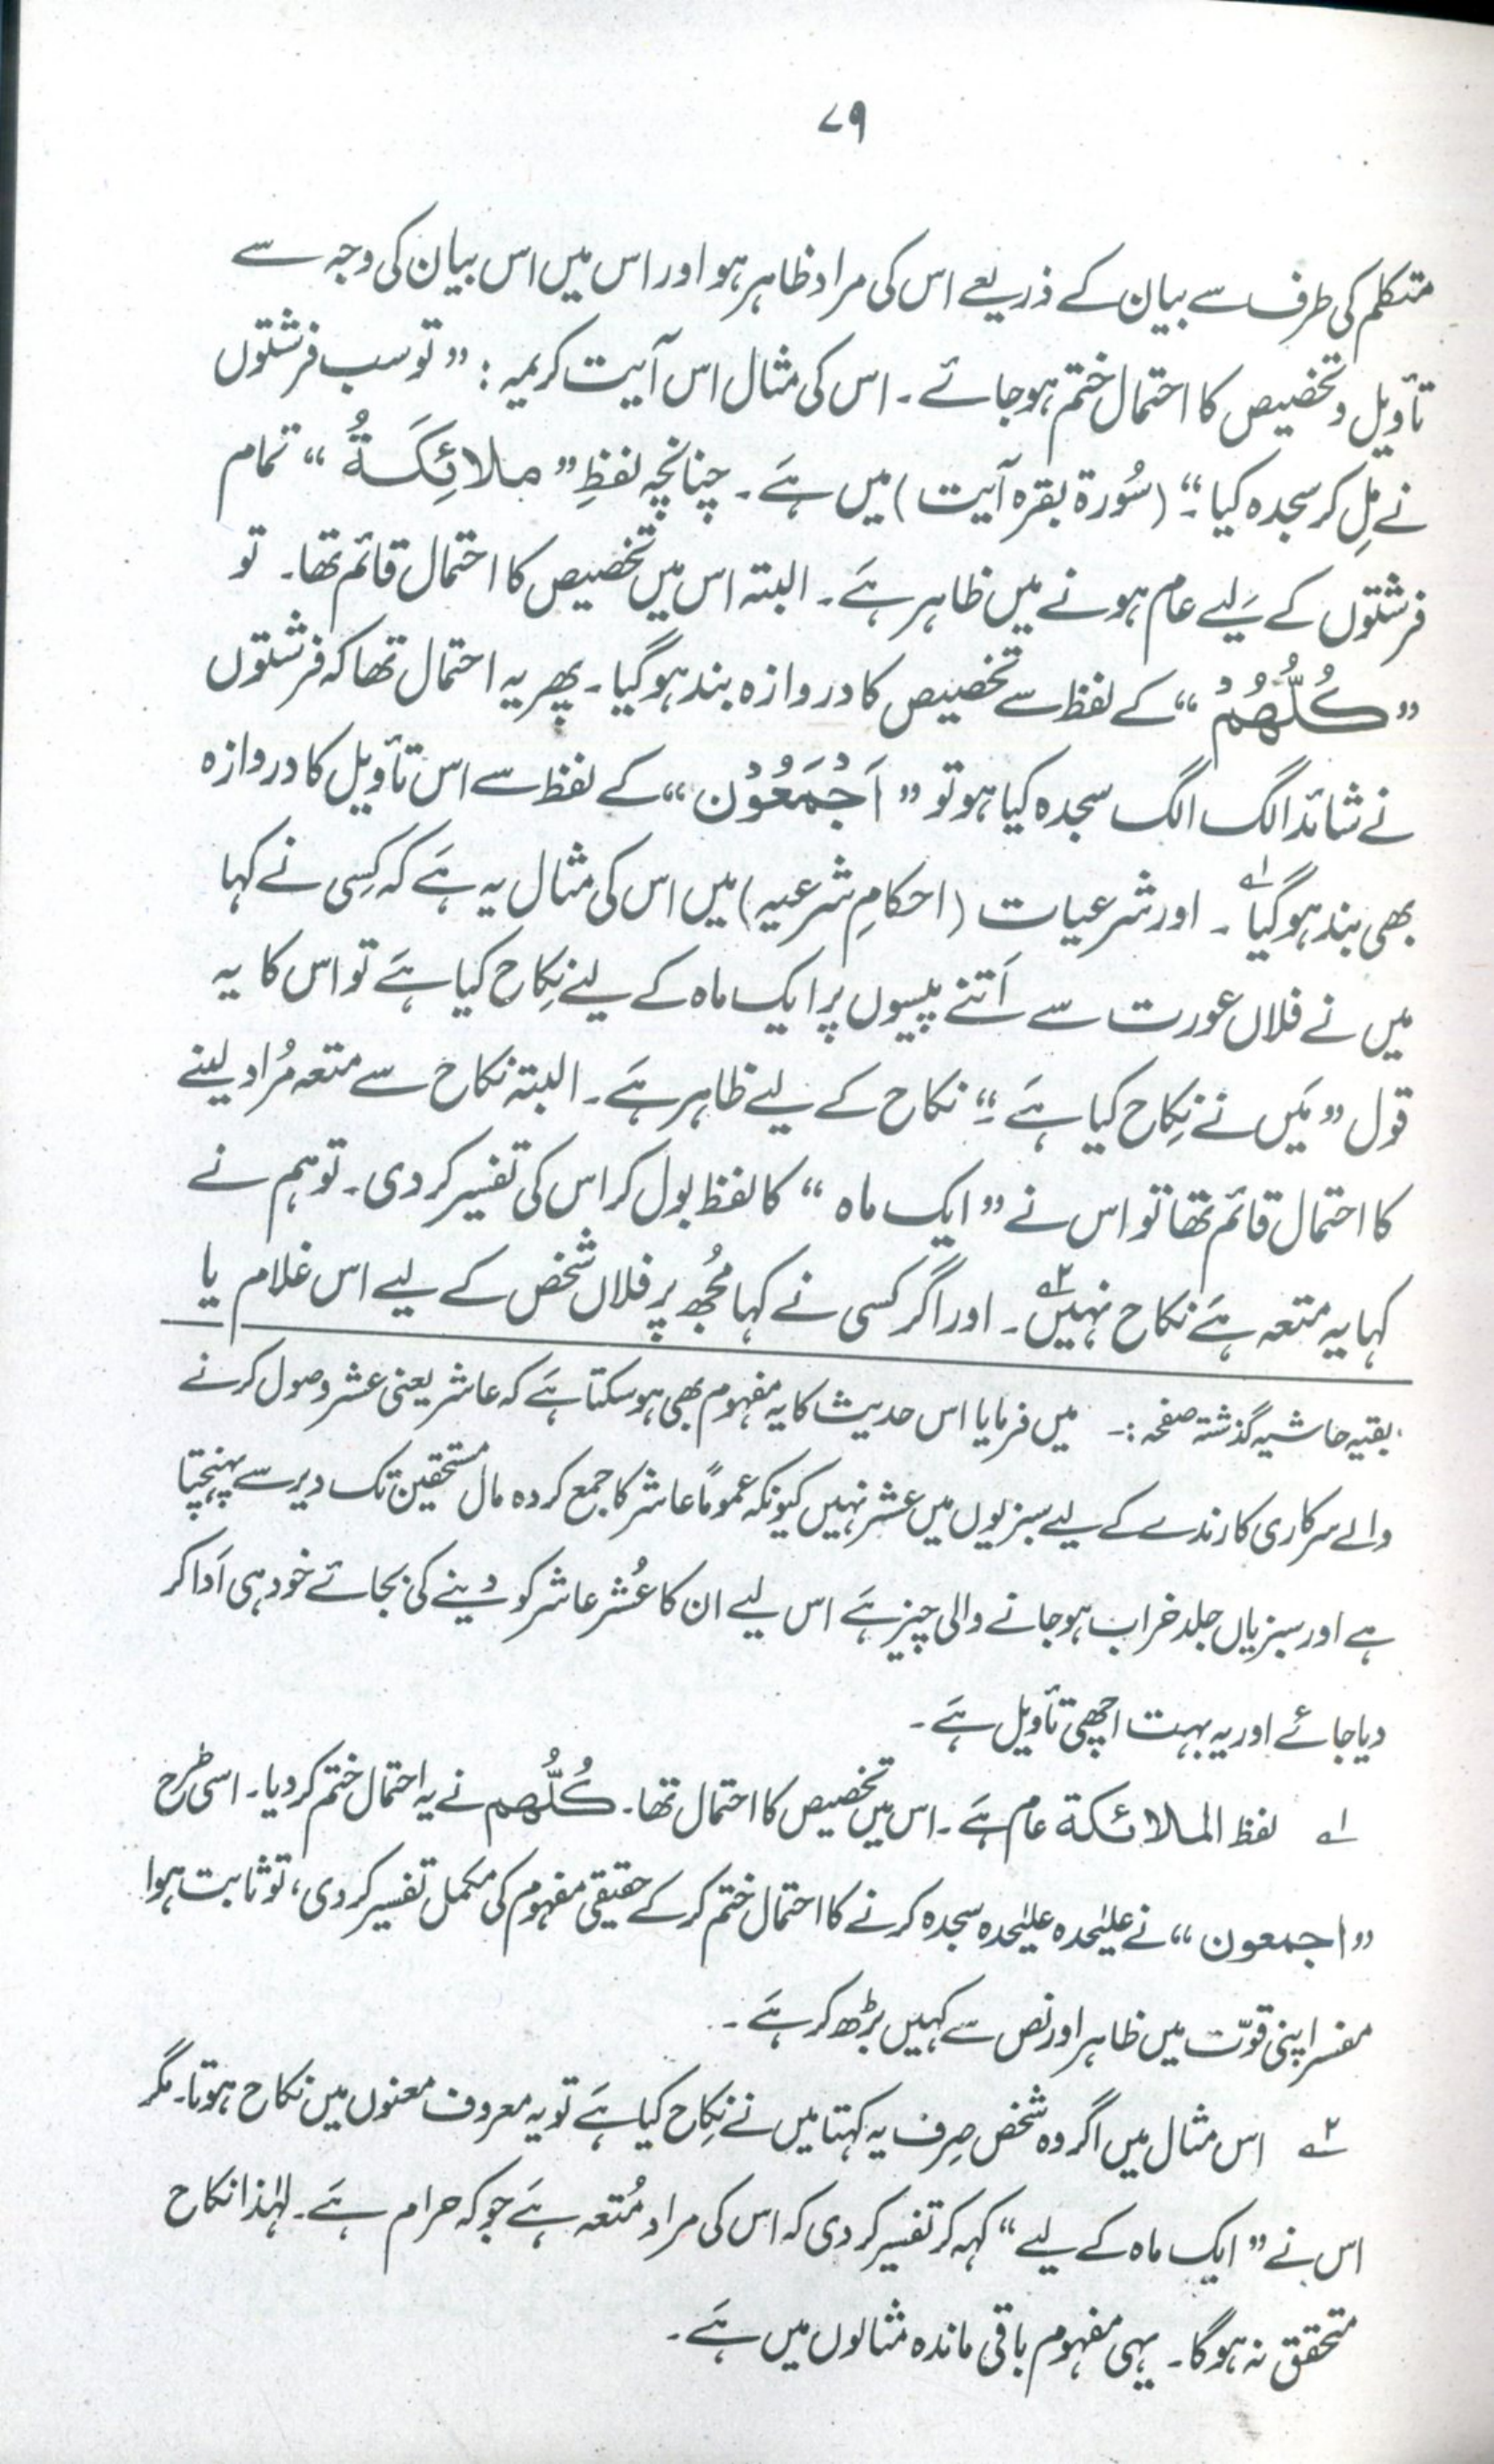 ۷۹
متکلم کی طرف سے بیان کے ذریعے اس کی مراد ظاہر ہو اور اس میں اس بیان کی وجہ سے
تأویل و تخصیص کا احتمال ختم ہو جائے ۔ اس کی مثال اس آیت کریمہ : ” تو سب فرشتوں
نے مِل کر سجدہ کیا ۔“ (سُورۃ بقرہ آیت ) میں ہَے ۔ چنانچہ لفظِ ” مَلائِکَۃُ “ تمام
فرشتوں کے لیے عام ہونے میں ظاہر ہَے ۔ البتہ اس میں تخصیص کا احتمال قائم تھا۔ تو
” کُلُّھُمْ “ کے لفظ سے تخصیص کا دروازہ بند ہو گیا ۔ پھر یہ احتمال تھا کہ فرشتوں
نے شائد الگ الگ سجدہ کیا ہو تو ” اَجْمَعُوْن “ کے لفظ سے اس تأویل کا دروازہ
بھی بند ہو گیا ؂۱ ۔ اور شرعیات (احکامِ شرعیہ) میں اس کی مثال یہ ہَے کہ کِسی نے کہا
میں نے فلاں عورت سے اَتنے پیسوں پر ایک ماہ کے لیئے نِکاح کیا ہَے تو اس کا یہ
قول ” مَیں نے نِکاح کیا ہَے ۔“ نکاح کے لیے ظاہر ہَے ۔ البتہ نکاح سے متعہ مُراد لینے
کا احتمال قائم تھا تو اس نے ” ایک ماہ “ کا لفظ بول کر اس کی تفسیر کر دی ۔ تو ہم نے
کہا یہ متعہ ہَے نکاح نہیں ؂۲ ۔ اور اگر کسی نے کہا مُجھ پر فلاں شخص کے لیے اس غلام یا
بقیہ حاشیہ گذشتہ صفحہ :۔ میں فرمایا اس حدیث کا یہ مفہوم بھی ہو سکتا ہَے کہ عاشر یعنی عشر وصول کرنے
والے سرکاری کارندے کے لیے سبزیوں میں عشر نہیں کیونکہ عموماً عاشر کا جمع کردہ مال مستحقین تک دیر سے پہنچتا
ہے اور سبزیاں جلد خراب ہو جانے والی چیز ہَے اس لیے ان کا عُشر عاشر کو دینے کی بجائے خود ہی اَدا کر
دیا جائے اور یہ بہت اچھی تأویل ہَے ۔
؂۱ لفظ الملائکۃ عام ہَے ۔ اس میں تخصیص کا احتمال تھا ۔ کُلُّھُم نے یہ احتمال ختم کر دیا ۔ اسی طرح
” اجمعون “ نے علیٰحدہ علیٰحدہ سجدہ کرنے کا احتمال ختم کر کے حقیقی مفہوم کی مکمل تفسیر کر دی ، تو ثابت ہوا
مفسر اپنی قوّت میں ظاہر اور نص سے کہیں بڑھ کر ہَے ۔
؂۲ اس مثال میں اگر وہ شخص صِرف یہ کہتا میں نے نِکاح کیا ہَے تو یہ معروف معنوں میں نکاح ہوتا۔ مگر
اس نے ” ایک ماہ کے لیے “ کہہ کر تفسیر کر دی کہ اس کی مراد مُتعہ ہَے جو کہ حرام ہَے ۔ لہٰذا نکاح
متحقق نہ ہوگا ۔ یہی مفہوم باقی ماندہ مثالوں میں ہَے ۔